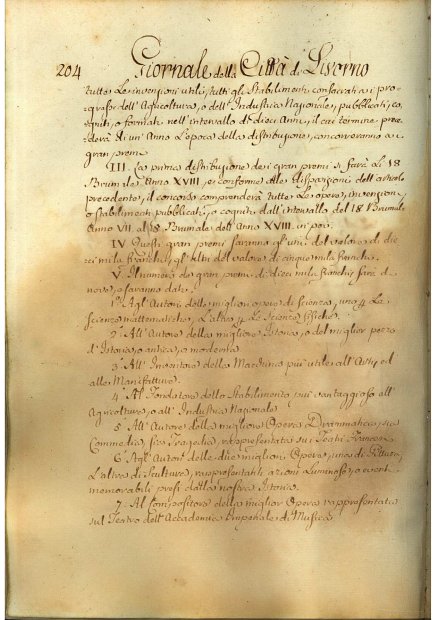 204 Giornale della Città di Livorno
tutte le invenzioni utili, tutti gli stabilimenti consacrati ai pro-
gressi dell'Agricoltura, o dell'Industria Nazionale, pubblicati, co-
gniti, o formati nell'intervallo di dieci Anni, il cui termine prece-
derà di un'Anno l'epoca della distribuzione, concorreranno ai
gran premi
III. La prima distribuzione dei gran premi si farà li 18
Brumale Anno XVIII, e conforme alle disposizioni dell'articolo
precedente, il concorso comprenderà tutte le opere, invenzioni
o stabilimenti pubblicati, o cogniti dall'intervallo del 18 Brumale
Anno VII al 18 Brumale dell'Anno XVIII in poi.
IV Questi gran premi saranno gli uni del valore di die-
ci mila franchi, gli altri del valore di cinque mila franchi.
V. Il numero de gran premi di dieci mila franchi sarà di
nove, e saranno dati:
1.° Agli Autori delle migliori opere di scienza, una per le
Scienze mattematiche, l'altra per le Scienze Fisiche.
2.° All'Autore della migliore Istoria, o del miglior pezzo
d'Istoria, o antica, o moderna
3.° All'Inventore della Macchina più utile all'Arti, ed
alle Manifatture.
4. Al Fondatore dello Stabilimento più vantaggioso all'
Agricoltura, o all'Industria Nazionale
5. All'Autore della migliore Opera Drammatica, sia
Commedia, sia Tragedia, rappresentata sui Teatri Francesi
6.° Agli Autori delle due migliori Opere, una di Pittura,
l'altra di Scultura, rappresentanti azioni luminose, o eventi
memorabili presi dalla nostra Istoria.
7. Al Compositore della miglior Opera rappresentata
sul Teatro dell'Accademia Imperiale di Musica